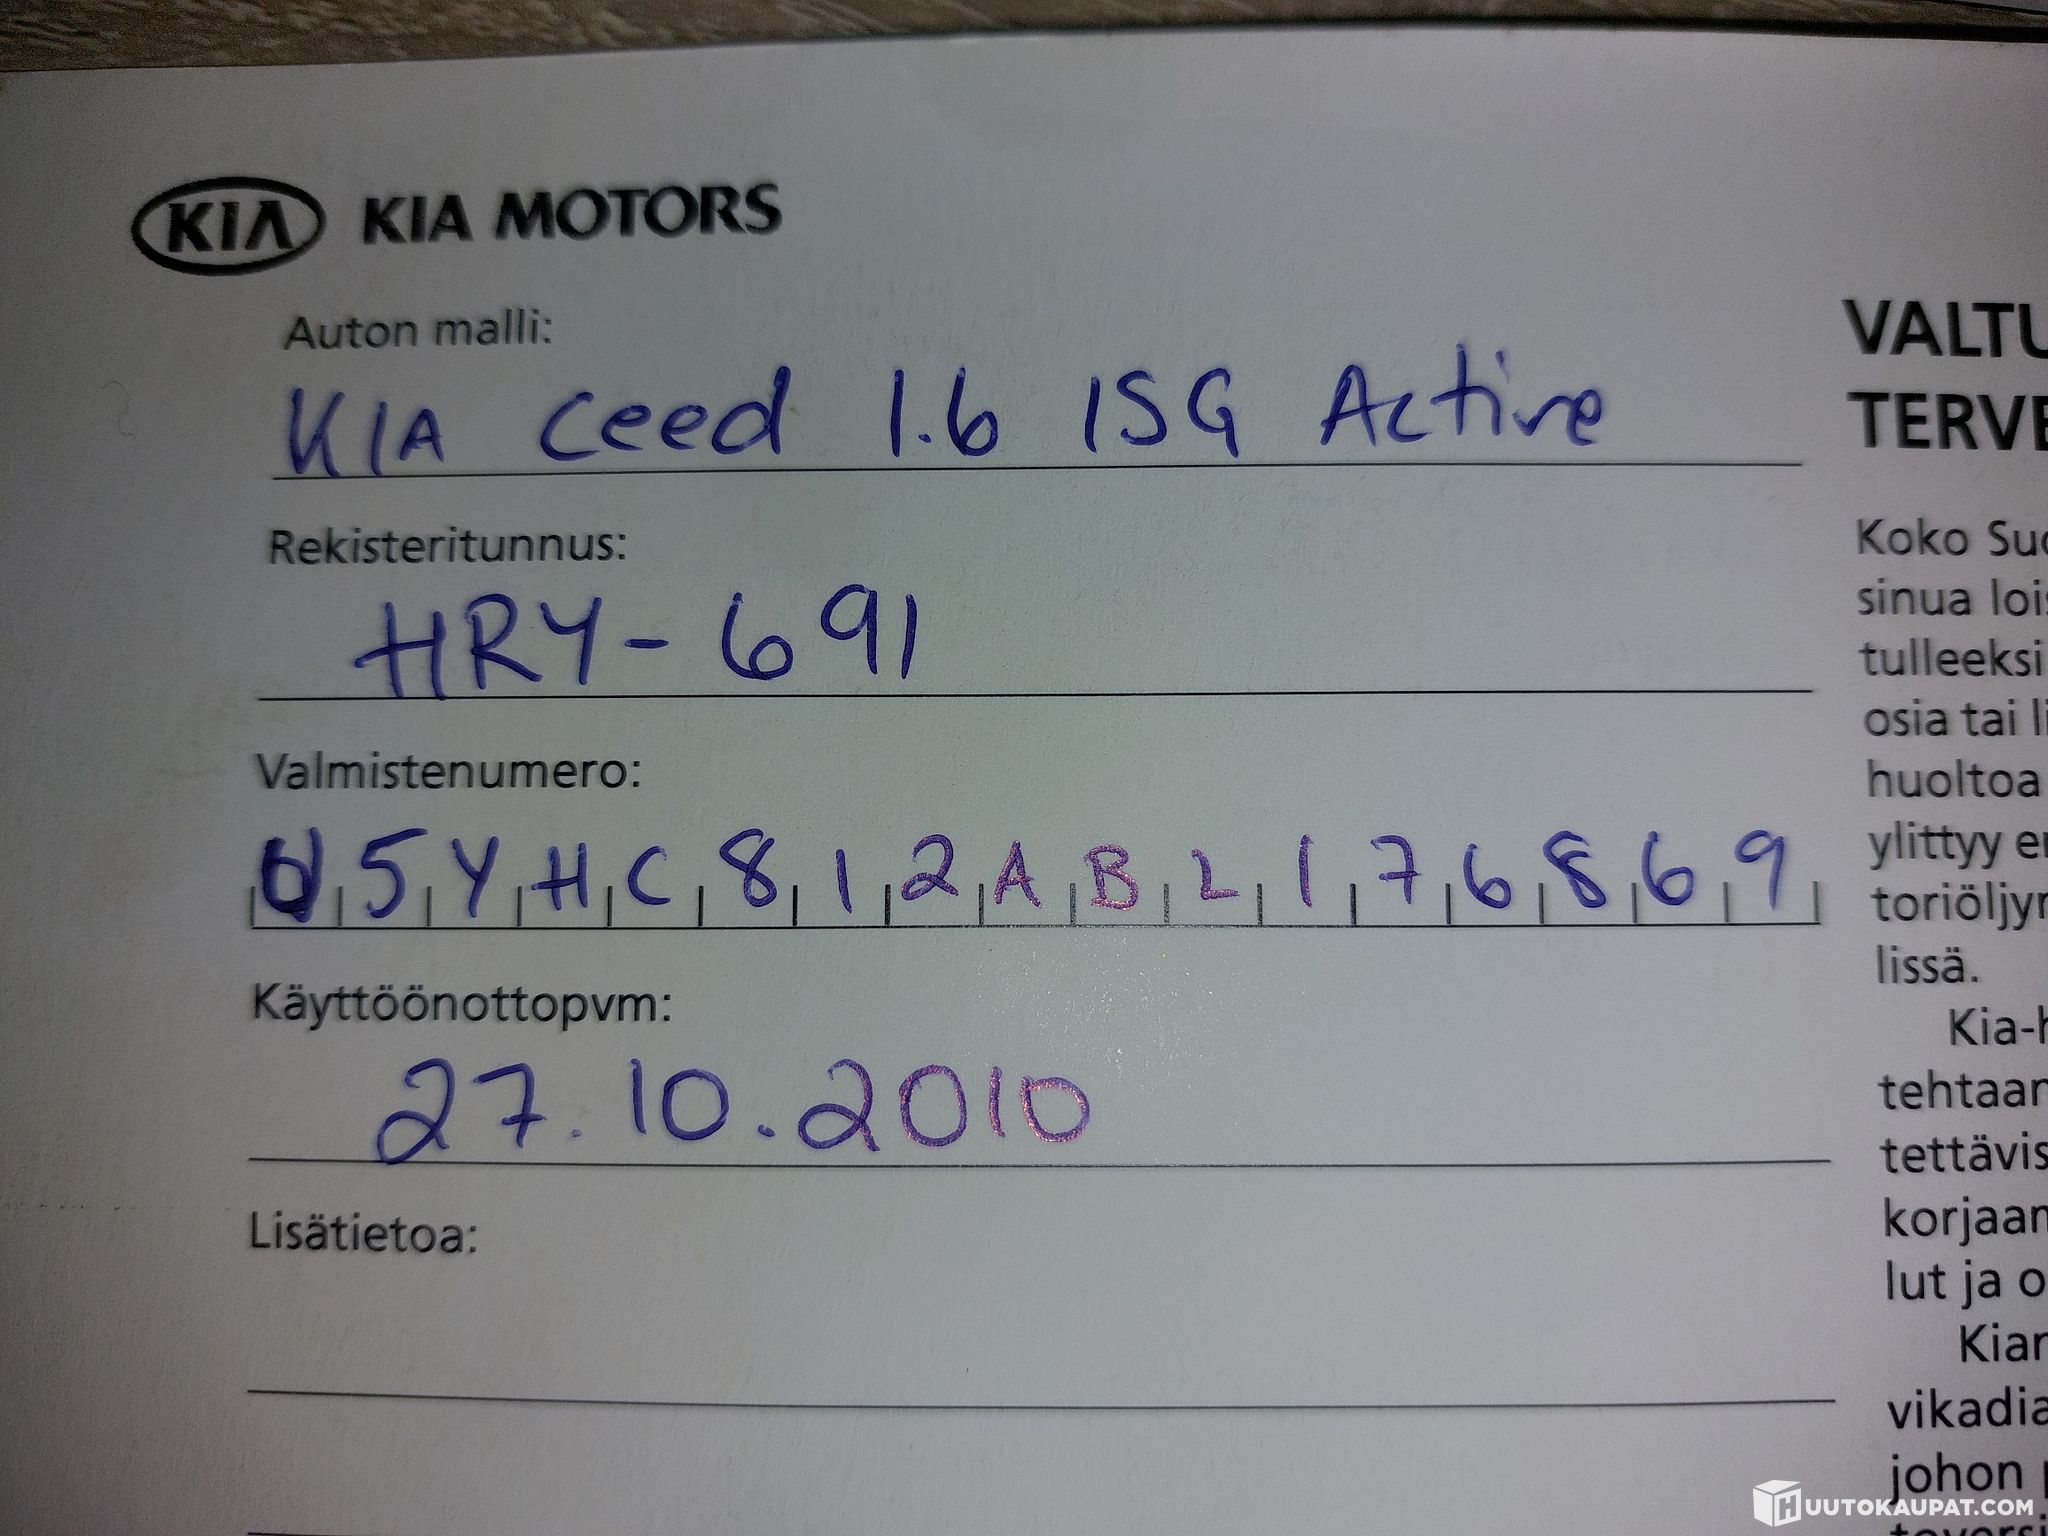 KIA KIA MOTORS
Auton malli:
KIA Ceed 1.6 ISG Active
Rekisteritunnus:
HRY-691
Valmistenumero:
U5YHC812ABL176869
Käyttöönottopvm:
27.10.2010
Lisätietoa:
VALTU
TERVE
Koko Suo
sinua lois
tulleeksi
osia tai li
huoltoa
ylittyy er
toriöljyn
lissä.
Kia-h
tehtaan
tettävis
korjaam
lut ja o
Kian
vikadia
johon p
HUUTOKAUPAT.COM